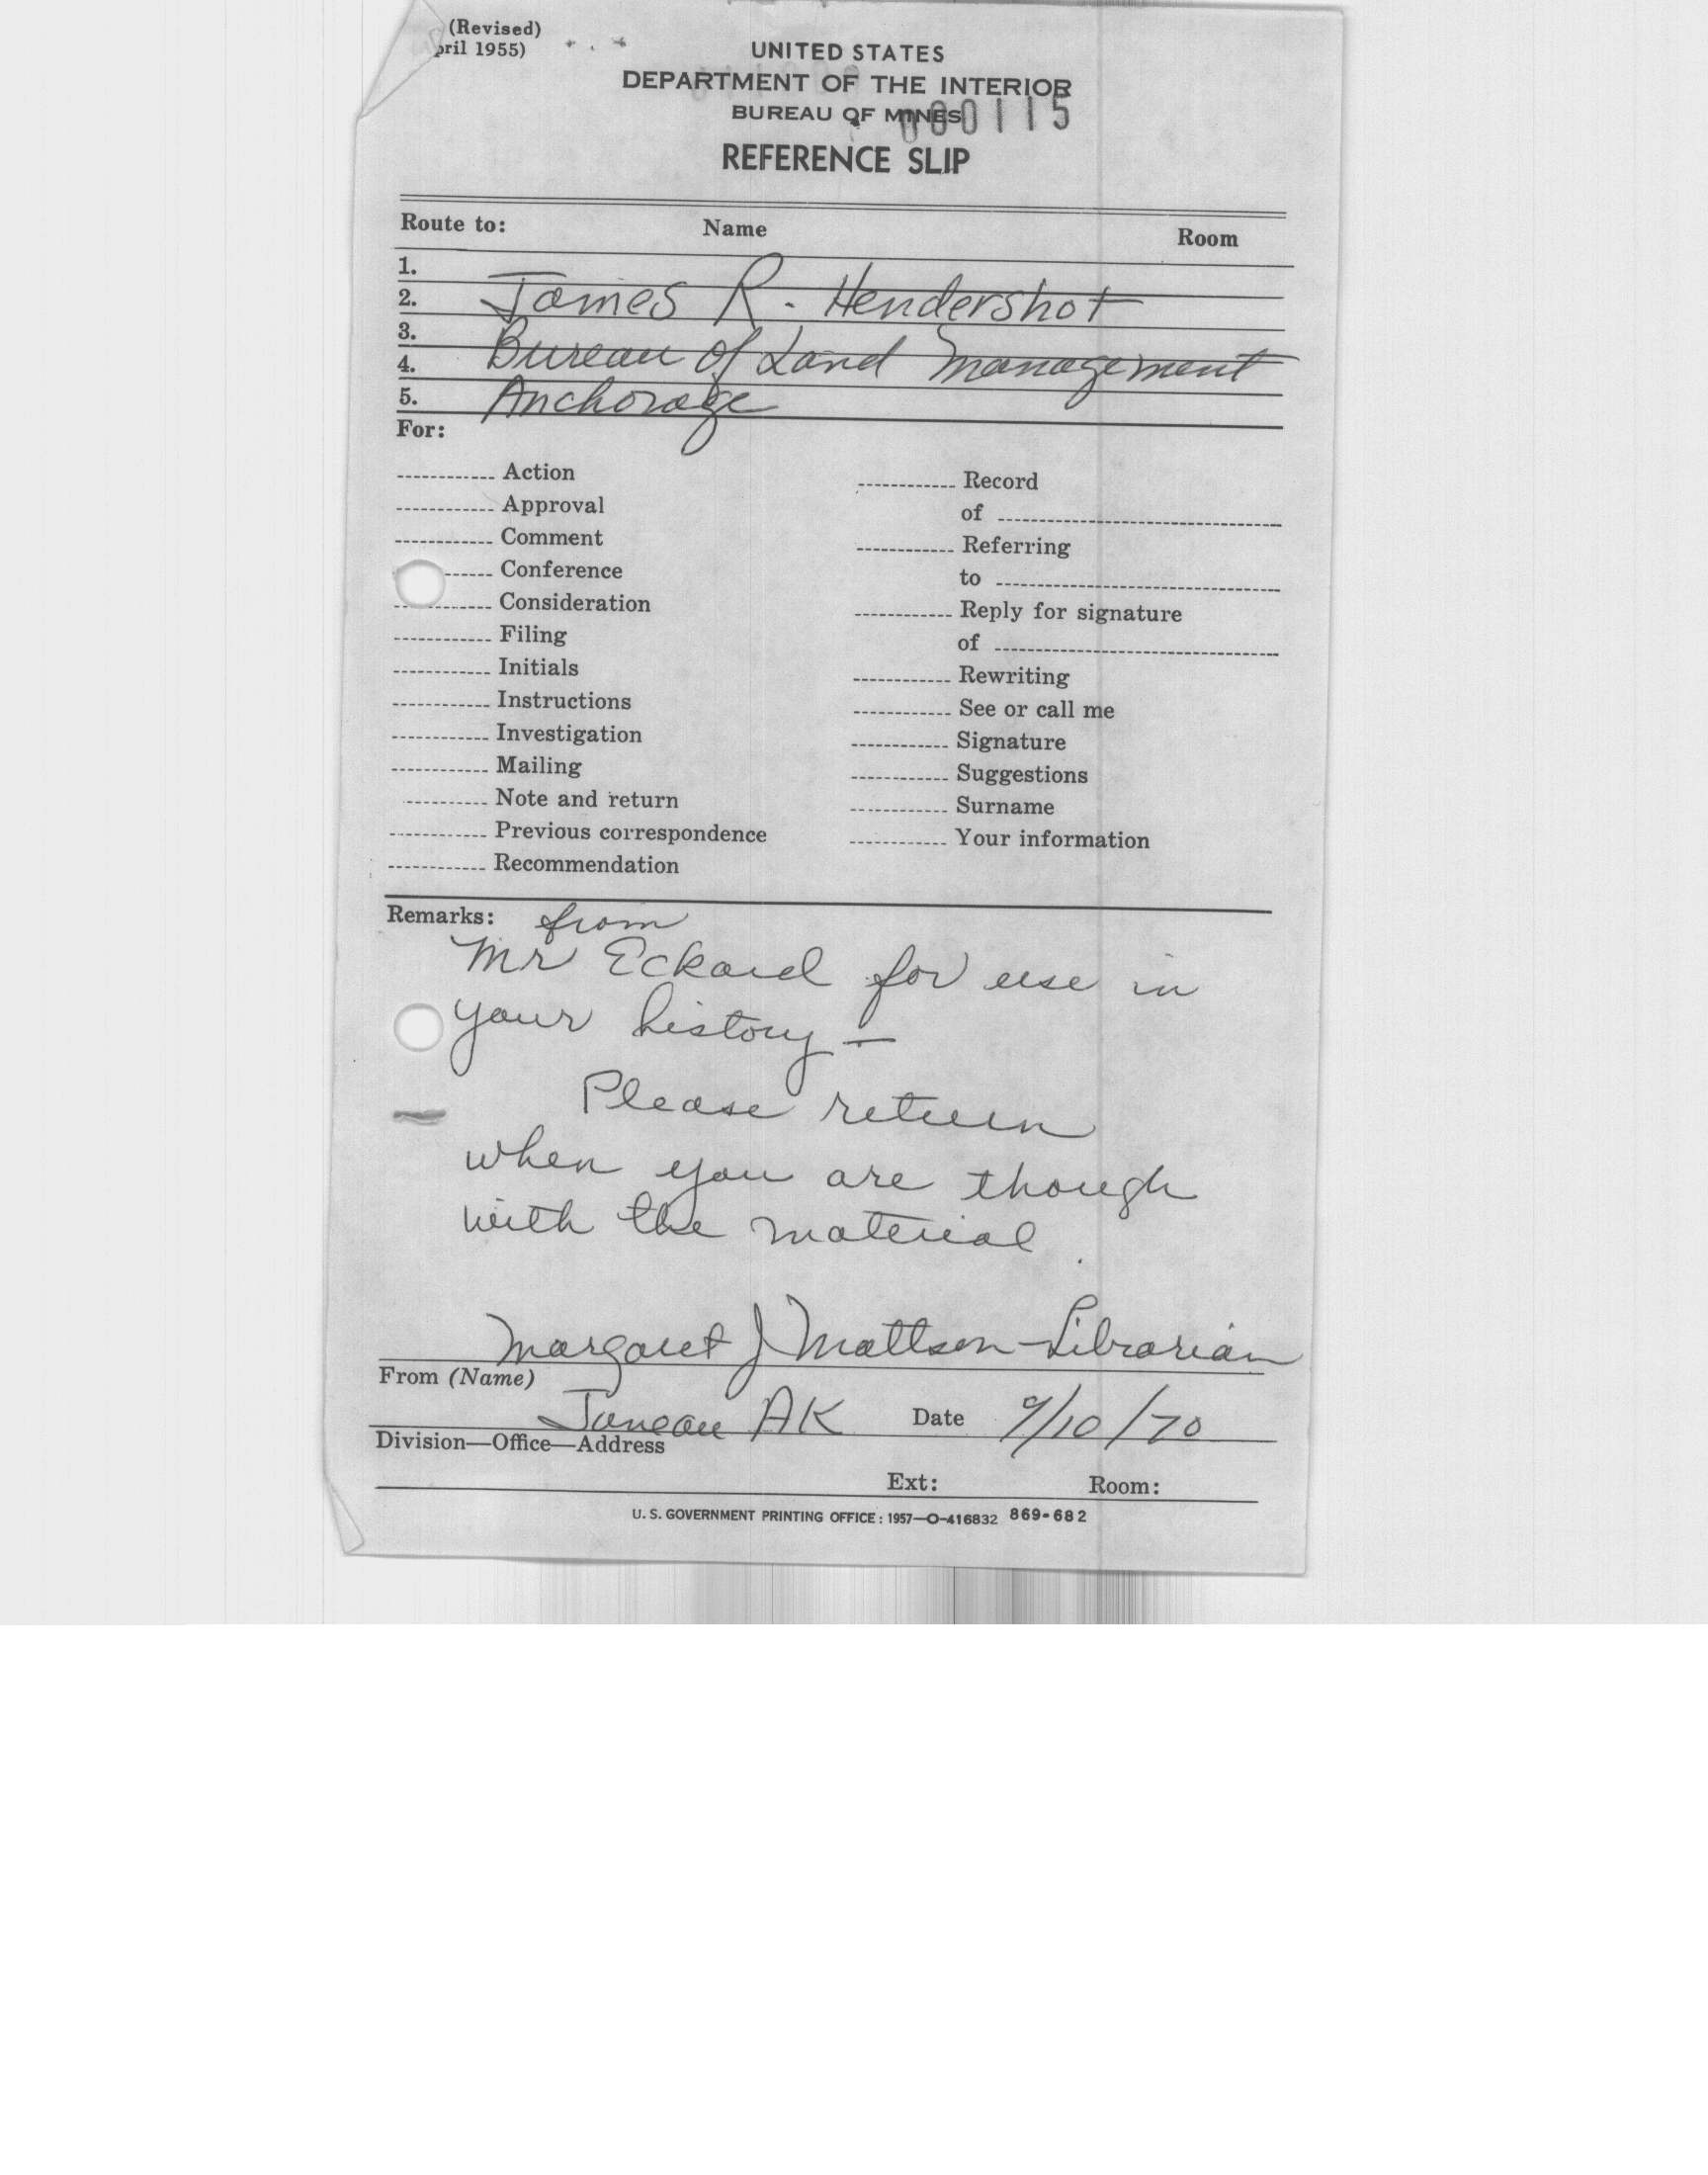 (Revised)
pril 1955)
UNITED STATES
DEPARTMENT OF THE INTERIOR
BUREAU OF MINES
000115
REFERENCE SLIP
Route to: Name Room
1.
2. James R. Hendershot
3.
4. Bureau of Land Management
5. Anchorage
For:
Action
Approval
Comment
Conference
Consideration
Filing
Initials
Instructions
Investigation
Mailing
Note and return
Previous correspondence
Recommendation
Record
of
Referring
to
Reply for signature
of
Rewriting
See or call me
Signature
Suggestions
Surname
Your information
Remarks: from
Mr Eckard for use in
your history —
Please return
when you are though
with the material.
Margaret J Mattson - Librarian
From (Name)
Juneau AK Date 9/10/70
Division—Office—Address
Ext: Room:
U. S. GOVERNMENT PRINTING OFFICE : 1957—O-416832 869-682